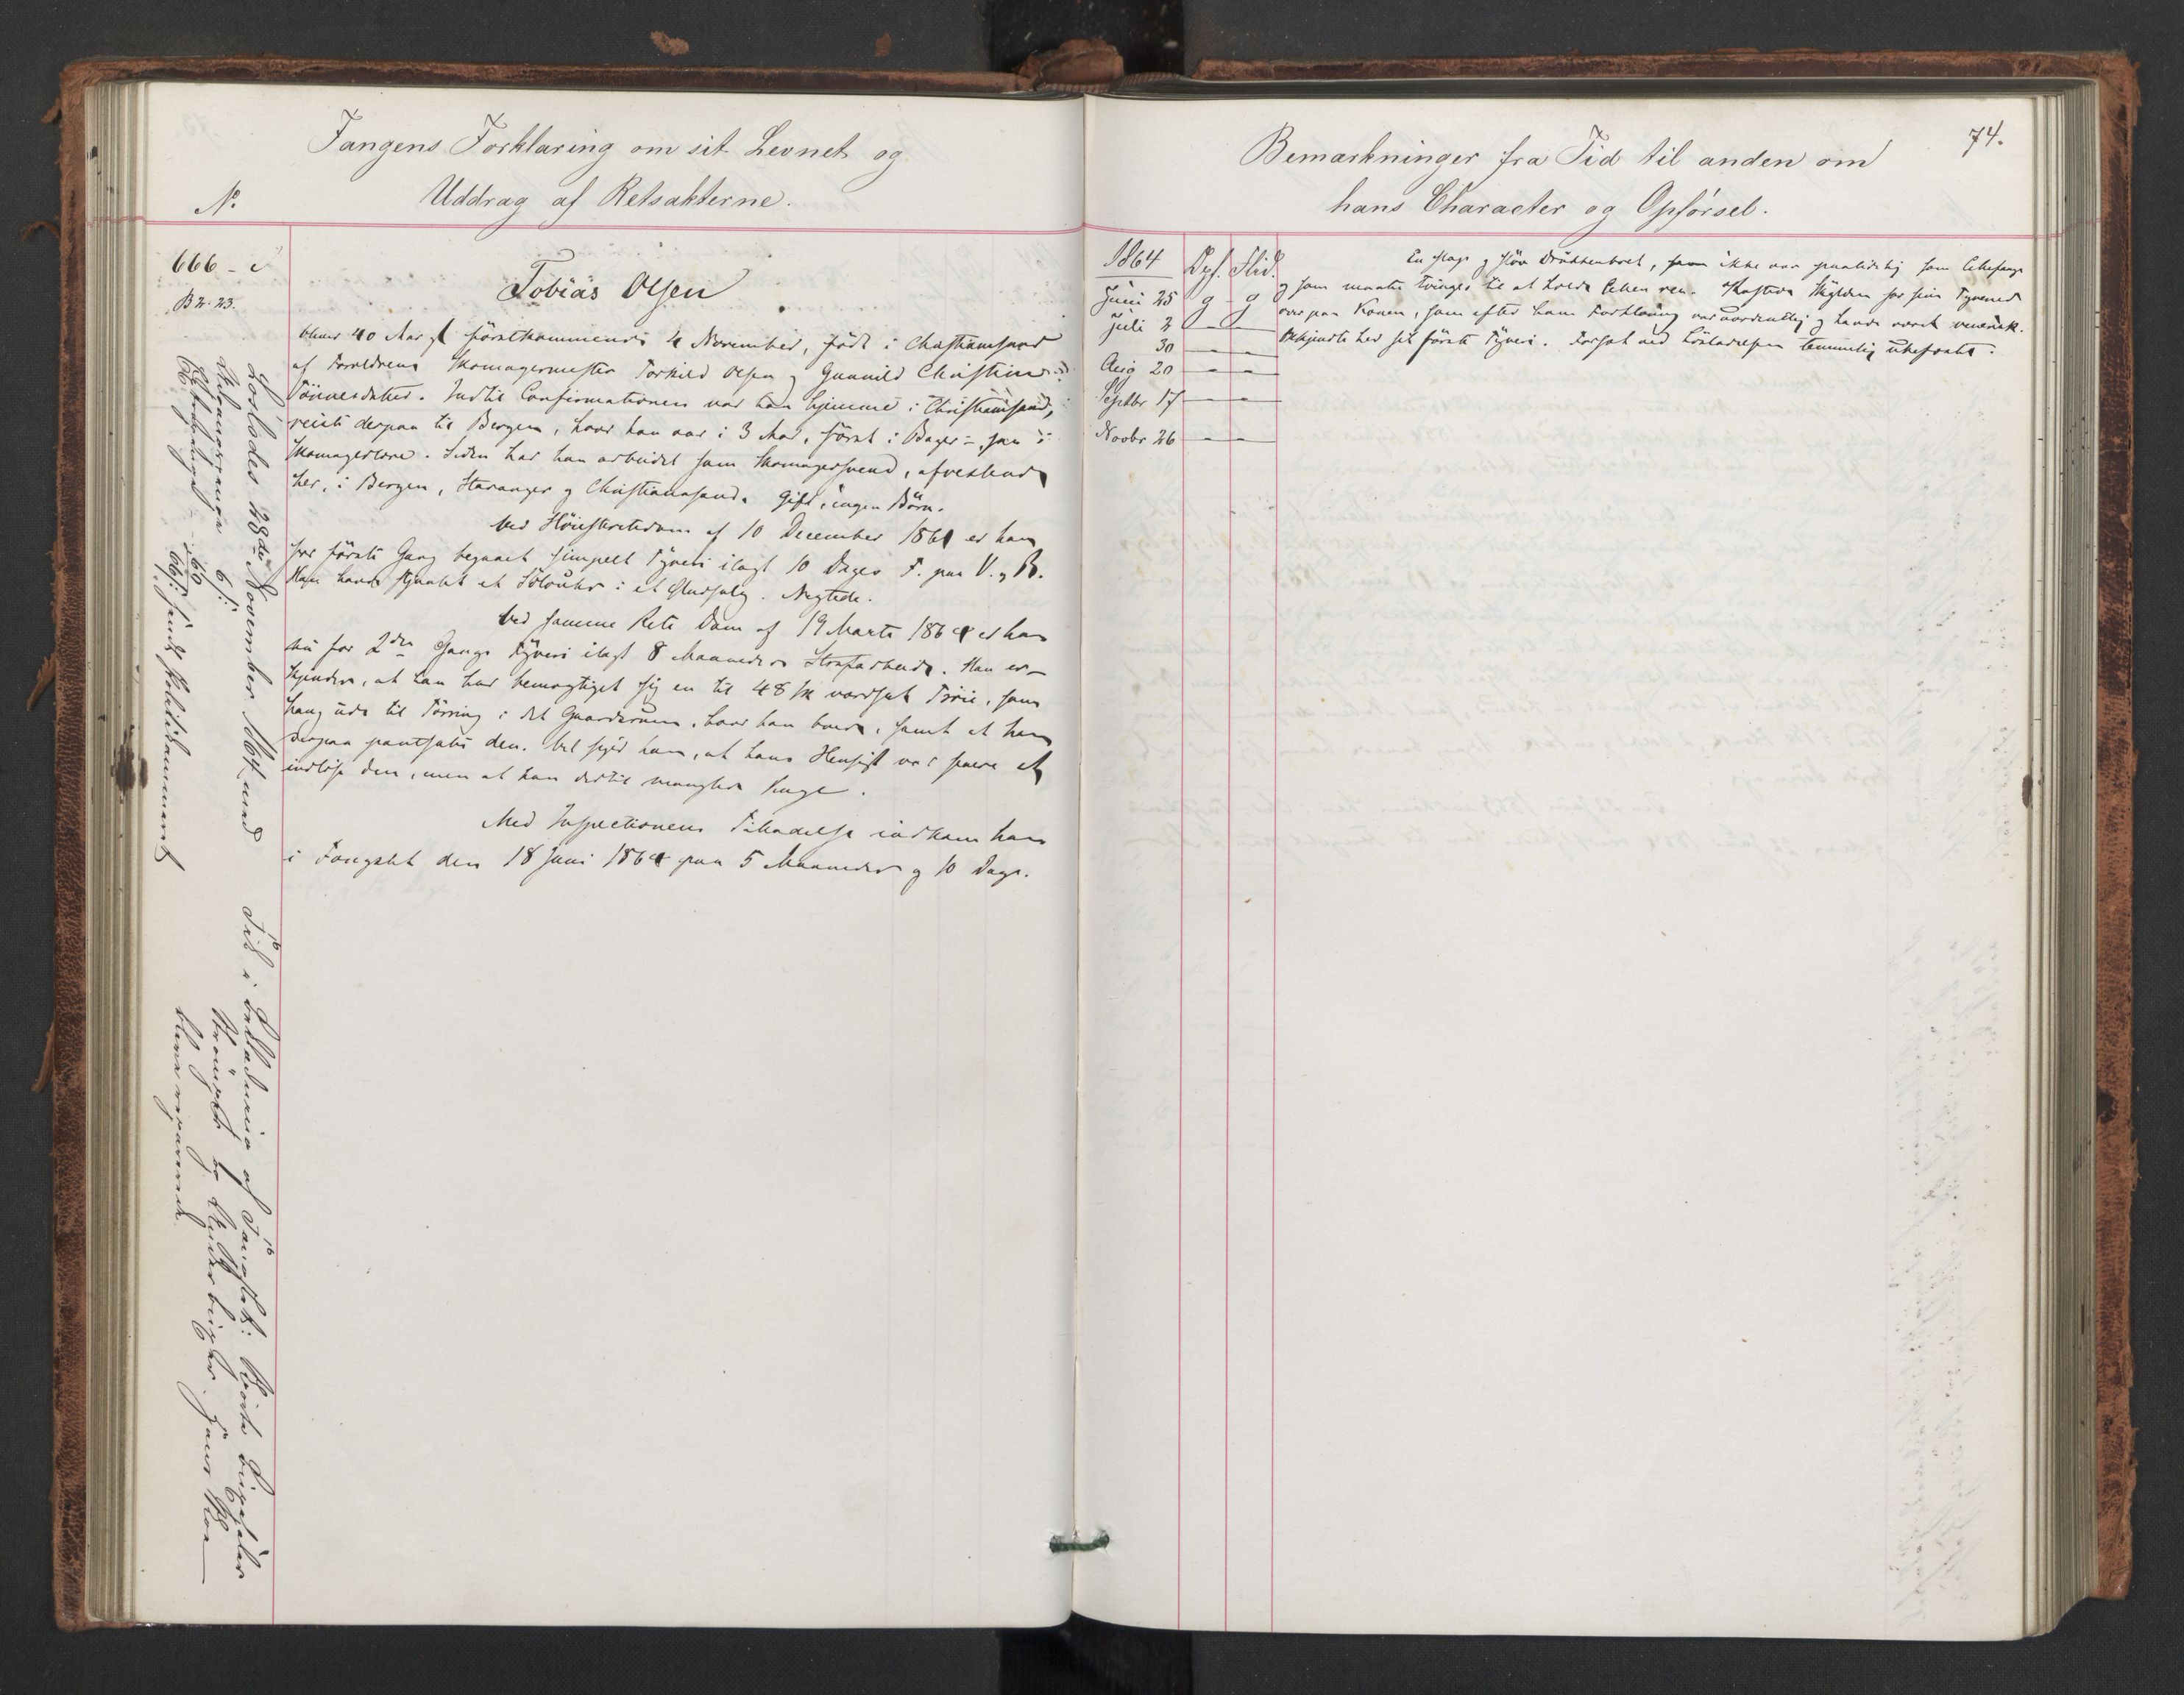 Fangens Forklaring om sit Levnet og
Uddrag af Retsakterne.
No.
666 - c
B 2. 23.
Tobias Olsen
bliver 40 Aar gl. førstkommende 4 November, født i Christiansand
af Forældrene Skomagermester Torkild Olsen og Gunnild Christine
Tönnesdatter. Indtil Confirmationen var han hjemme i Christiansand,
reiste derpaa til Bergen, hvor han var i 3 Aar, først i Bager-, saa i
Skomagerlære. Siden har han arbeidet som Skomagersvend, afvexlende
her, i Bergen, Stavanger og Christianssand. Gift, ingen Børn.
Ved Höiesteretsdom af 10 December 1861 er han
for første Gang begaaet simpelt Tyveri ilagt 10 Dages F. paa V. og B.
Han havde stjaalet et Sölvuhr i et Udsalg. Negtede.
Ved samme Rets Dom af 19 Marts 1864 er han
nu for 2den Gangs Tyveri ilagt 8 Maaneders Strafarbeide. Han er-
kjender, at han har bemægtiget sig en til 48 sk værdsat Tröie, som
hang ude til Törring i det Gaardsrum, hvor han boede, samt at han
derpaa pantsatte den. Vel siger han, at hans Hensigt var senere at
indløse den, men at han dertil manglede Penge.
Med Inspectionens Tilladelse indkom han
i Fængslet den 18 Juni 1864 paa 5 Maaneder og 10 Dage.
Løslodes 28de November 1864 med
6 s:
- 60 -
66 s: sendt Politikammeret
Tilladelse af Fængslet:
blive reparerede.
74.
Bemærkninger fra Tid til anden om
hans Character og Opførsel.
1864 Opf. Flid.
Juni 25 g g
Juli 2 - -
30 - -
Aug 20 - -
Septbr 17 - -
Novbr 26 - -
En slap og sløv Drukkenbolt, som ikke var paalidelig som Cellefange
og som maatte tvinges til at holde Cellen ren. Kastede Skylden for sin Tyvened
over paa Konen, som efter hans Forklaring var uordentlig og havde været
Bekjendte her sit første Tyveri. Forsat ved Løsladelsen temmelig